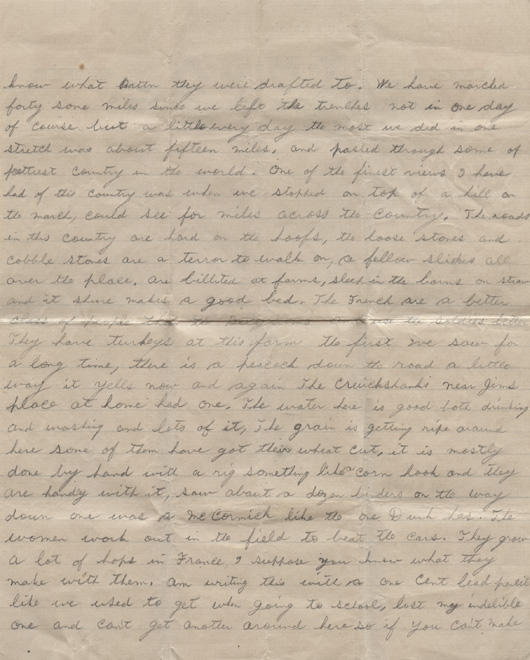 know what Battn they were drafted to. We have marched
forty some miles since we left the trenches not in one day
of course but a little every day the most we did in one
stretch was about fifteen miles, and passed through some of
prettiest country in the world. One of the finest views I have
had of this country was when we stopped on top of a hill on
the march, could see for miles across the country. The roads
in this country are hard on the hoofs, the loose stones and
cobble stones are a terror to walk on, a fellow slides all
over the place. are billited at farms, sleep in the barns on straw
and it shure makes a good bed. The French are a better
class of people than the
They have turkeys at this farm the first we saw for
a long time, there is a peicock down the road a little
way it yells now and again The Cruickshanks near Jims
place at home had one. The water here is good both drinking
and washing and lots of it, The grain is getting ripe around
here some of them have got their wheat cut, it is mostly
done by hand with a rig something like a corn hook and they
are handy with it, saw about a dozen binders on the way
down one was a McCormick like the one Dunk has. The
women work out in the field to beat the cars. They grow
a lot of hops in France, I suppose you know what they
make with them. Am writing this with a one cent lead pencil
like we used to get when going to school, lost my indelible
one and can't get another around here so if you can't make